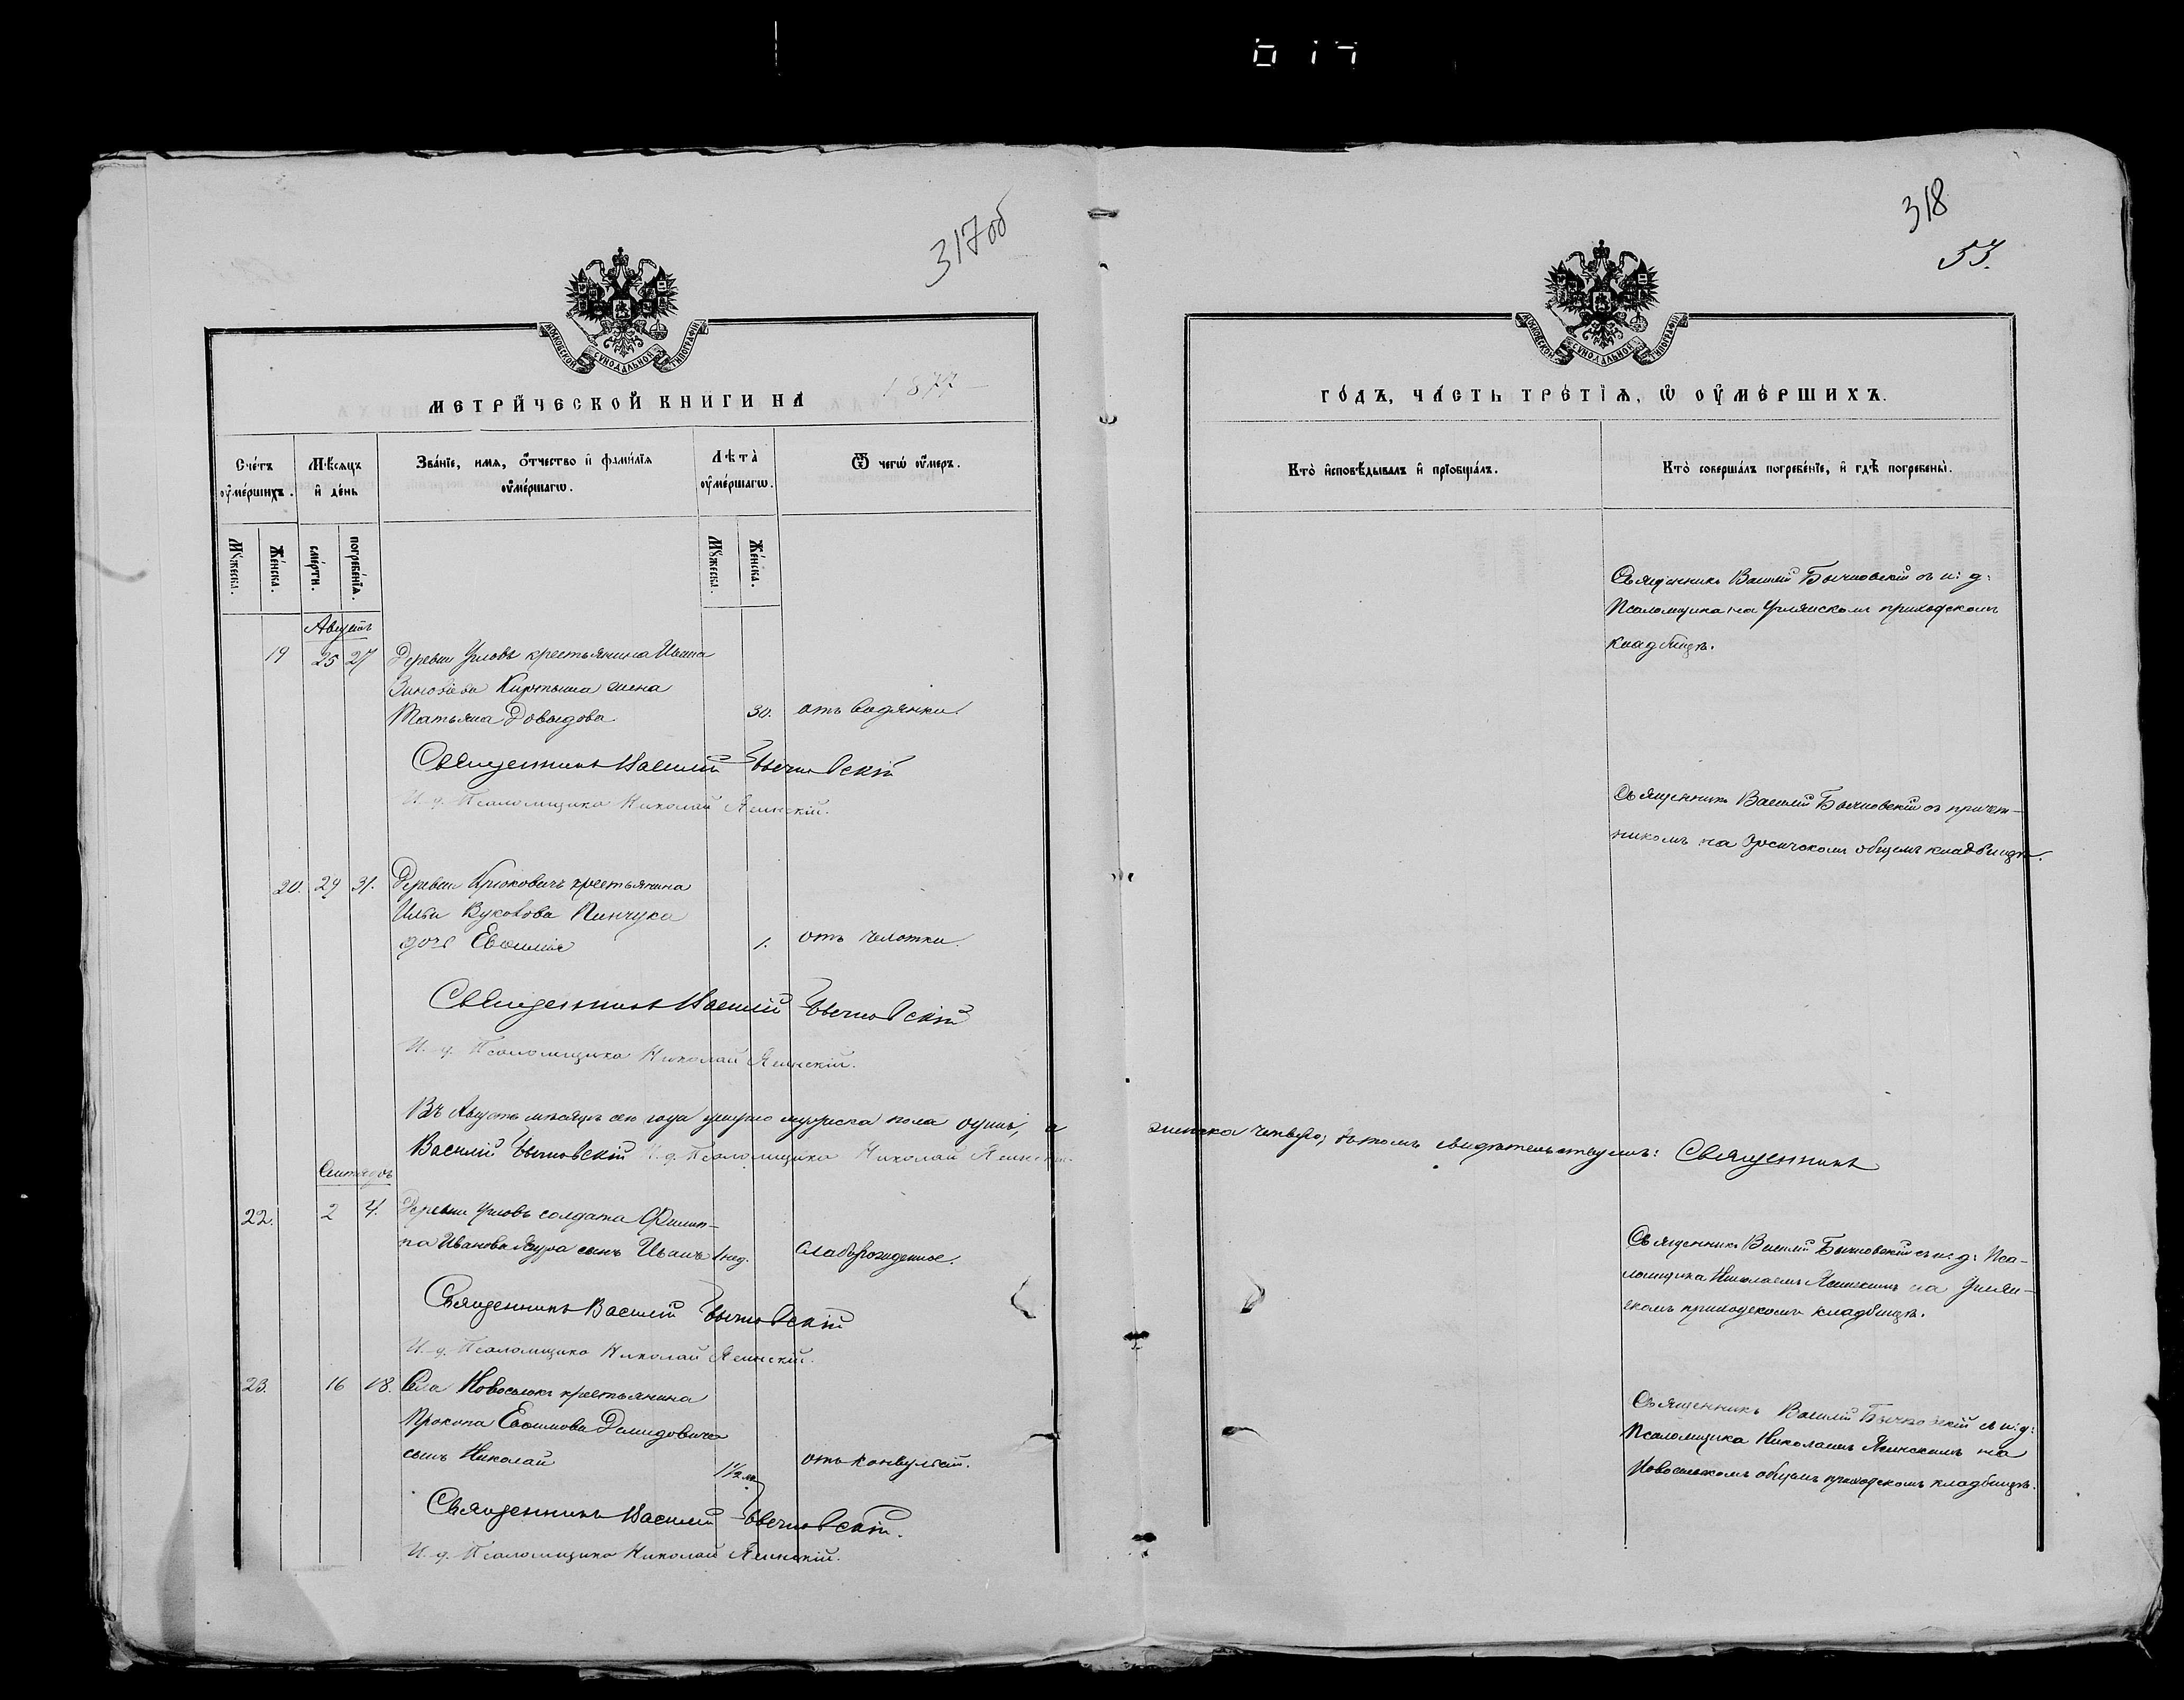 317об
МОСКОВСКОЙ СѴНОДАЛЬНОЙ ТИПОГРАФІИ
МЕТРИ́ЧЕСКОЙ КНИ́ГИ НА 1877
Сче́тъ ᲂу҆ме́ршихъ.
Мѣ́сяцъ и҆ де́нь
Зва́нїе, имѧ, ѻ҆́тчество и҆ фами́лїѧ ᲂу҆ме́ршагѡ.
Лѣта̀ ᲂу҆ме́ршагѡ.
Ѿ чегѡ̀ ᲂу҆́меръ.
Мꙋ́жеска.
Же́нска.
сме́рти.
погребе́нїѧ.
Мꙋ́жеска.
Же́нска.
Августъ
19 25 27 Деревни Угловъ крестьянина Ивана
Зиновіева жена
Татьяна Довыдова 30. отъ водянки.
Священникъ Василій Бычковскій
И. д. Псаломщика Николай Ясинскій.
20. 29 31. Деревни Крюковичъ крестьянина
Ильи Пинчука
дочь Евфимія 1. отъ чахотки.
Священникъ Василій Бычковскій
И. д. Псаломщика Николай Ясинскій.
Въ Августѣ мѣсяцѣ сего года умерло мужеска пола а
Василій Бычковскій И. д. Псаломщика Николай Ясинскій.
Сентябрь
22. 2 4. Деревни Угловъ солдата Филип-
па Иванова сынъ Иванъ 1 нед. слаборожденное.
Священникъ Василій Бычковскій
И. д. Псаломщика Николай Ясинскій.
23. 16 18. Села Новоселокъ крестьянина
Прокопа Евфимова Демидовича
сынъ Николай 1½ отъ конвульсій.
Священникъ Василій Бычковскій.
И. д. Псаломщика Николай Ясинскій.
318
53.
МОСКОВСКОЙ СѴНОДАЛЬНОЙ ТИПОГРАФІИ
ГО́ДЪ, ЧА́СТЬ ТРЕ́ТІѦ, Ѡ҆ ОУ҆МЕ́РШИХЪ.
Кто̀ и҆сповѣ́дывалъ и҆ прїѡбща́лъ.
Кто̀ соверша́лъ погребе́нїе, и҆ гдѣ̀ погребены̀.
Священникъ Василій Бычковскій съ и: д:
Псаломщика на Углянскомъ приходскомъ
кладбищѣ.
Священникъ Василій Бычковскій съ причет-
никомъ на общемъ кладбищѣ.
женска четверо; въ томъ свидѣтельствуемъ: Священникъ
Священникъ Василій Бычковскій съ и: д: Пса-
ломщика Николаемъ Ясинскимъ на Углян-
скомъ приходскомъ кладбищѣ.
Священникъ Василій Бычковскій съ и: д:
Псаломщика Николаемъ Ясинскимъ на
Новоселокомъ общемъ приходскомъ кладбищѣ.